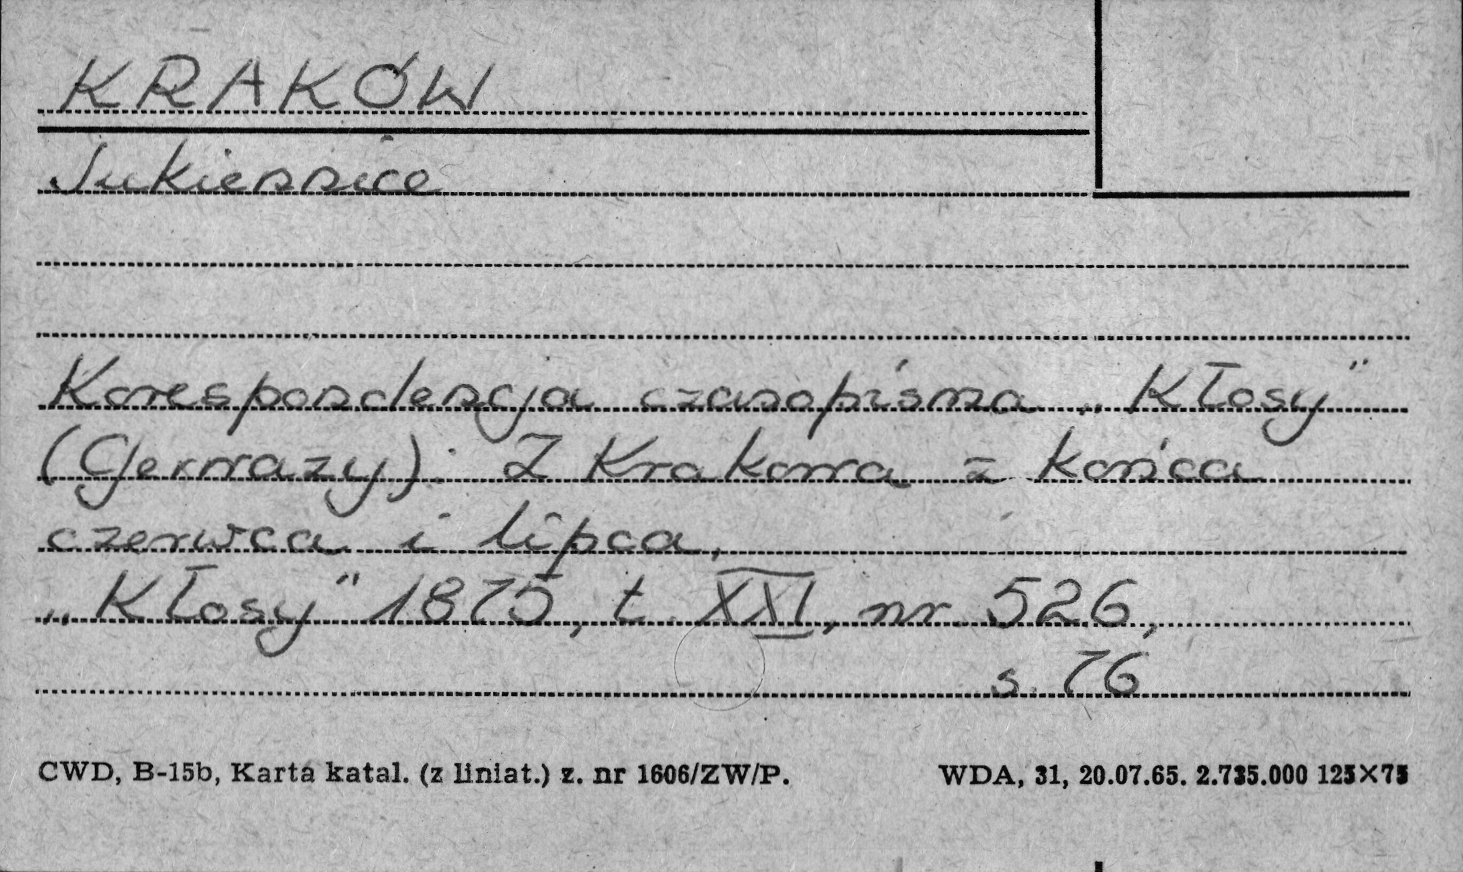 KRAKÓW
Sukiennice
Korespondencja czasopisma „Kłosy"
(Gerwazy): Z Krakowa z końca
czerwca i lipca,
„Kłosy" 1875, t. XXI, nr. 526,
s. 76
CWD, B-15b, Karta katal. (z liniat.) z. nr 1606/ZW/P.
WDA, 31, 20.07.65. 2.735.000 125×75